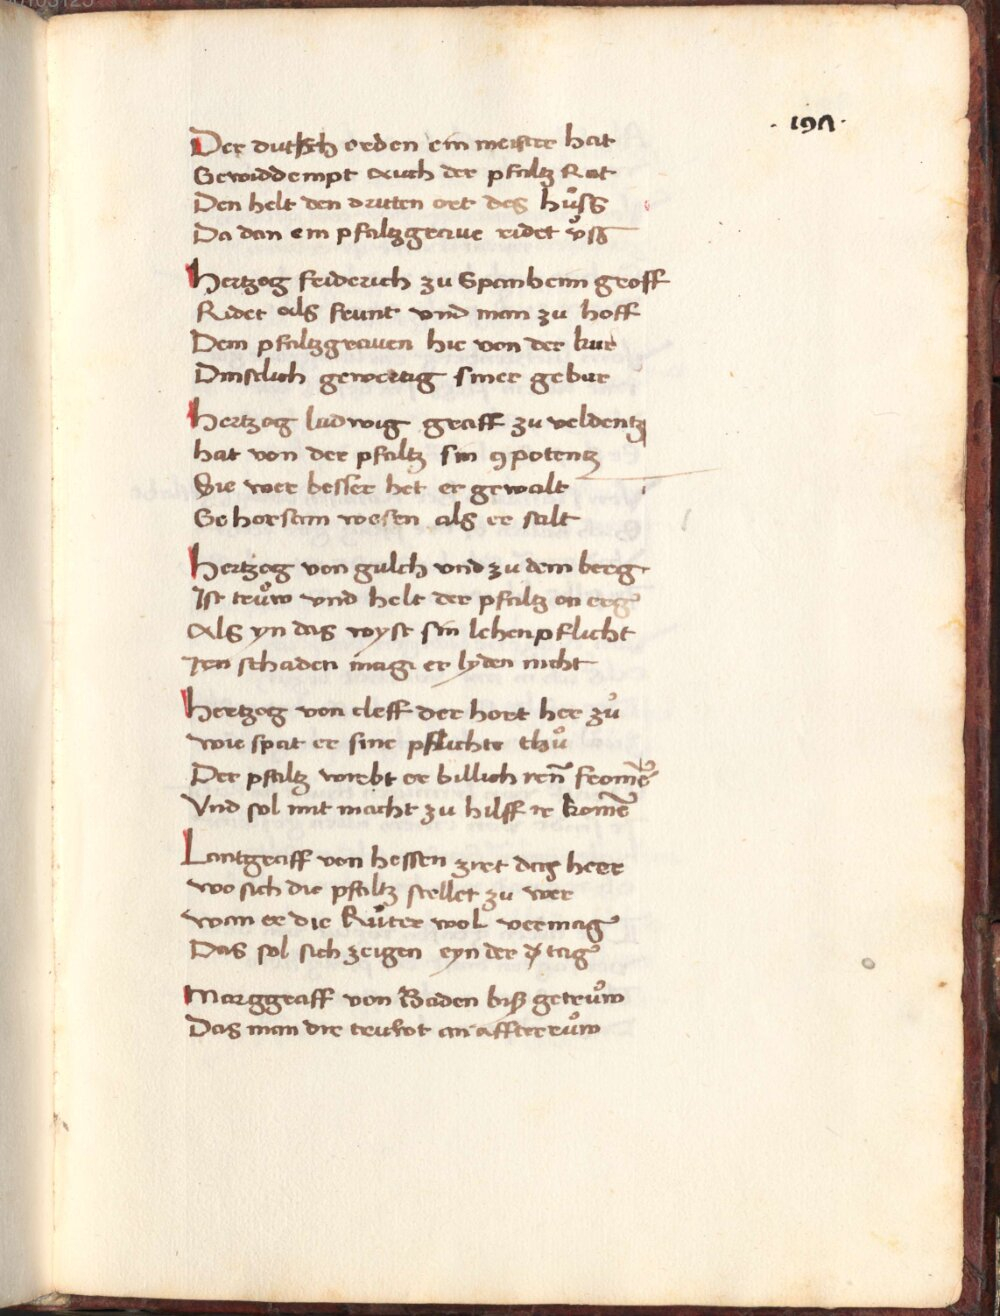 · 197 ·
Der dutsch orden ein meister hat
Gewiddempt auch der pfaltz Rat
Den helt den dritten ort des hůsß
Da dan ein pfaltzgraue ridet ůsß
Hertzog friderich zu Spanheim graff
Ridet als frunt vnd man zu hoff
Dem pfaltzgrauen hie von der kur
Dinstlich gewertig siner gebur
Hertzog ludwig graff zu veldentz
hat von der pfaltz sin ꝯpotentz
Die wer besser het er gewalt
Gehorsam wesen als er salt
Hertzog von gulch vnd zu dem berg
Ist trůw vnd helt der pfaltz on erg
Als yn das wyst sin lehenpflicht
Iren schaden mag er lyden nicht
Hertzog von cleff der hort her zů
wie spat er sine pflichte thů
Der pfaltz wirbt er billich iren̄ frome
Vnd sol mit macht zu hilff ir kome
Lantgraff von hessen ziret das heer
wo sich die pfaltz stellet zu wer
wan er die Růter wol vermag
Das sol sich zeigen eyn der tag
Marggraff von Baden biß getrůw
Das man die an affterrůw